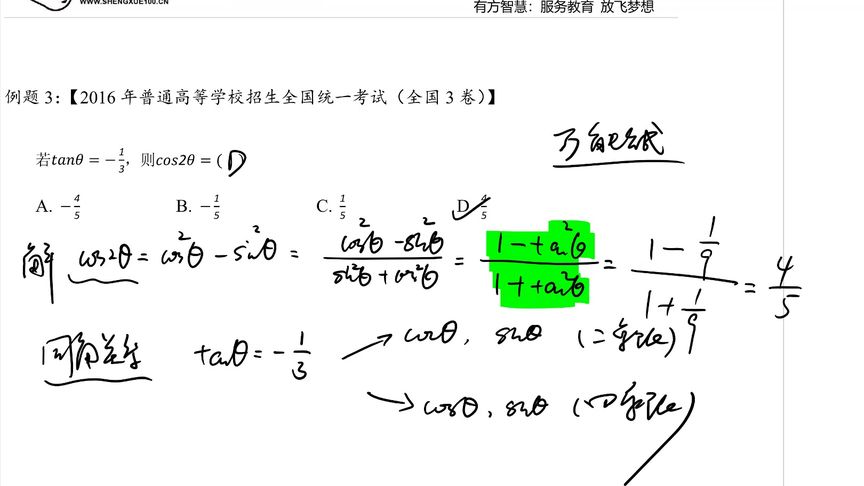 WWW.SHENGXUE100.CN
有方智慧：服务教育 放飞梦想
例题 3:【2016 年普通高等学校招生全国统一考试（全国 3 卷）】
万能公式
若tanθ = −1/3，则cos2θ = ( D )
A. −4/5 B. −1/5 C. 1/5 D 4/5
解 cos2θ = cos²θ − sin²θ = (cos²θ − sin²θ)/(sin²θ + cos²θ) = (1 − tan²θ)/(1 + tan²θ) = (1 − 1/9)/(1 + 1/9) = 4/5
同角关系 tanθ = − 1/3 → cosθ, sinθ (二
→ cosθ, sinθ (四